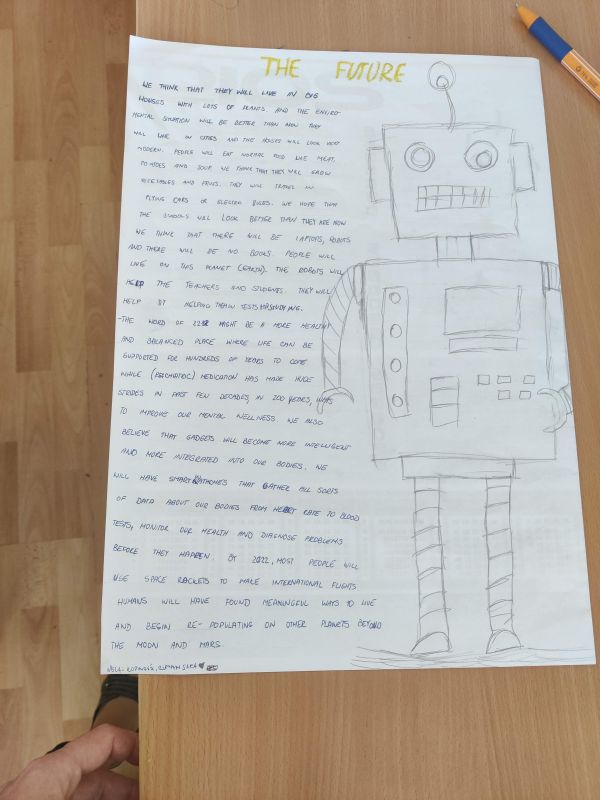 THE FUTURE
WE THINK THAT THEY WILL LIVE IN BIG
HOUSES WITH LOTS OF PLANTS. AND THE ENVIRO-
MENTAL SITUATION WILL BE BETTER THAN NOW THEY
WILL LIVE IN CITIES AND THE HOUSES WILL LOOK VERY
MODERN. PEOPLE WILL EAT NORMAL FOOD LIKE MEAT,
POTATOES AND SOUP. WE THINK THAT THEY WILL GROW
VEGETABLES AND FRUITS. THEY WILL TRAVEL IN
FLYING CARS OR ELECTRO BUSES. WE HOPE THAT
THE SCHOOLS WILL LOOK BETTER THAN THEY ARE NOW
WE THINK THAT THERE WILL BE LAPTOPS, ROBOTS
AND THERE WILL BE NO BOOKS. PEOPLE WILL
LIVE ON THIS PLANET (EARTH). THE ROBOTS WILL
HELP THE TEACHERS AND STUDENTS. THEY WILL
HELP BY HELPING THEM TESTS STUDYING.
-THE WORD OF MIGHT BE A MORE HEALTHY
AND BALANCED PLACE WHERE LIFE CAN BE
SUPPORTED FOR HUNDREDS OF YEARS TO COME
WHILE (PSYCHIATRIC) MEDICATION HAS MADE HUGE
STRIDES IN PAST FEW DECADES, IN 200 YEARS, WAYS
TO IMPROVE OUR MENTAL WELLNESS. WE ALSO
BELIEVE THAT GADGETS WILL BECOME MORE INTELLIGENT
AND MORE INTEGRATED INTO OUR BODIES. WE
WILL HAVE SMART WATCHES THAT GATHER ALL SORTS
OF DATA ABOUT OUR BODIES FROM HEART RATE TO BLOOD
TESTS, MONITOR OUR HEALTH AND DIAGNOSE PROBLEMS
BEFORE THEY HAPPEN. BY 2222, MOST PEOPLE WILL
USE SPACE ROCKETS TO MAKE INTERNATIONAL FLIGHTS
HUMANS WILL HAVE FOUND MEANINGFUL WAYS TO LIVE
AND BEGIN RE-POPULATING ON OTHER PLANETS BEYOND
THE MOON AND MARS